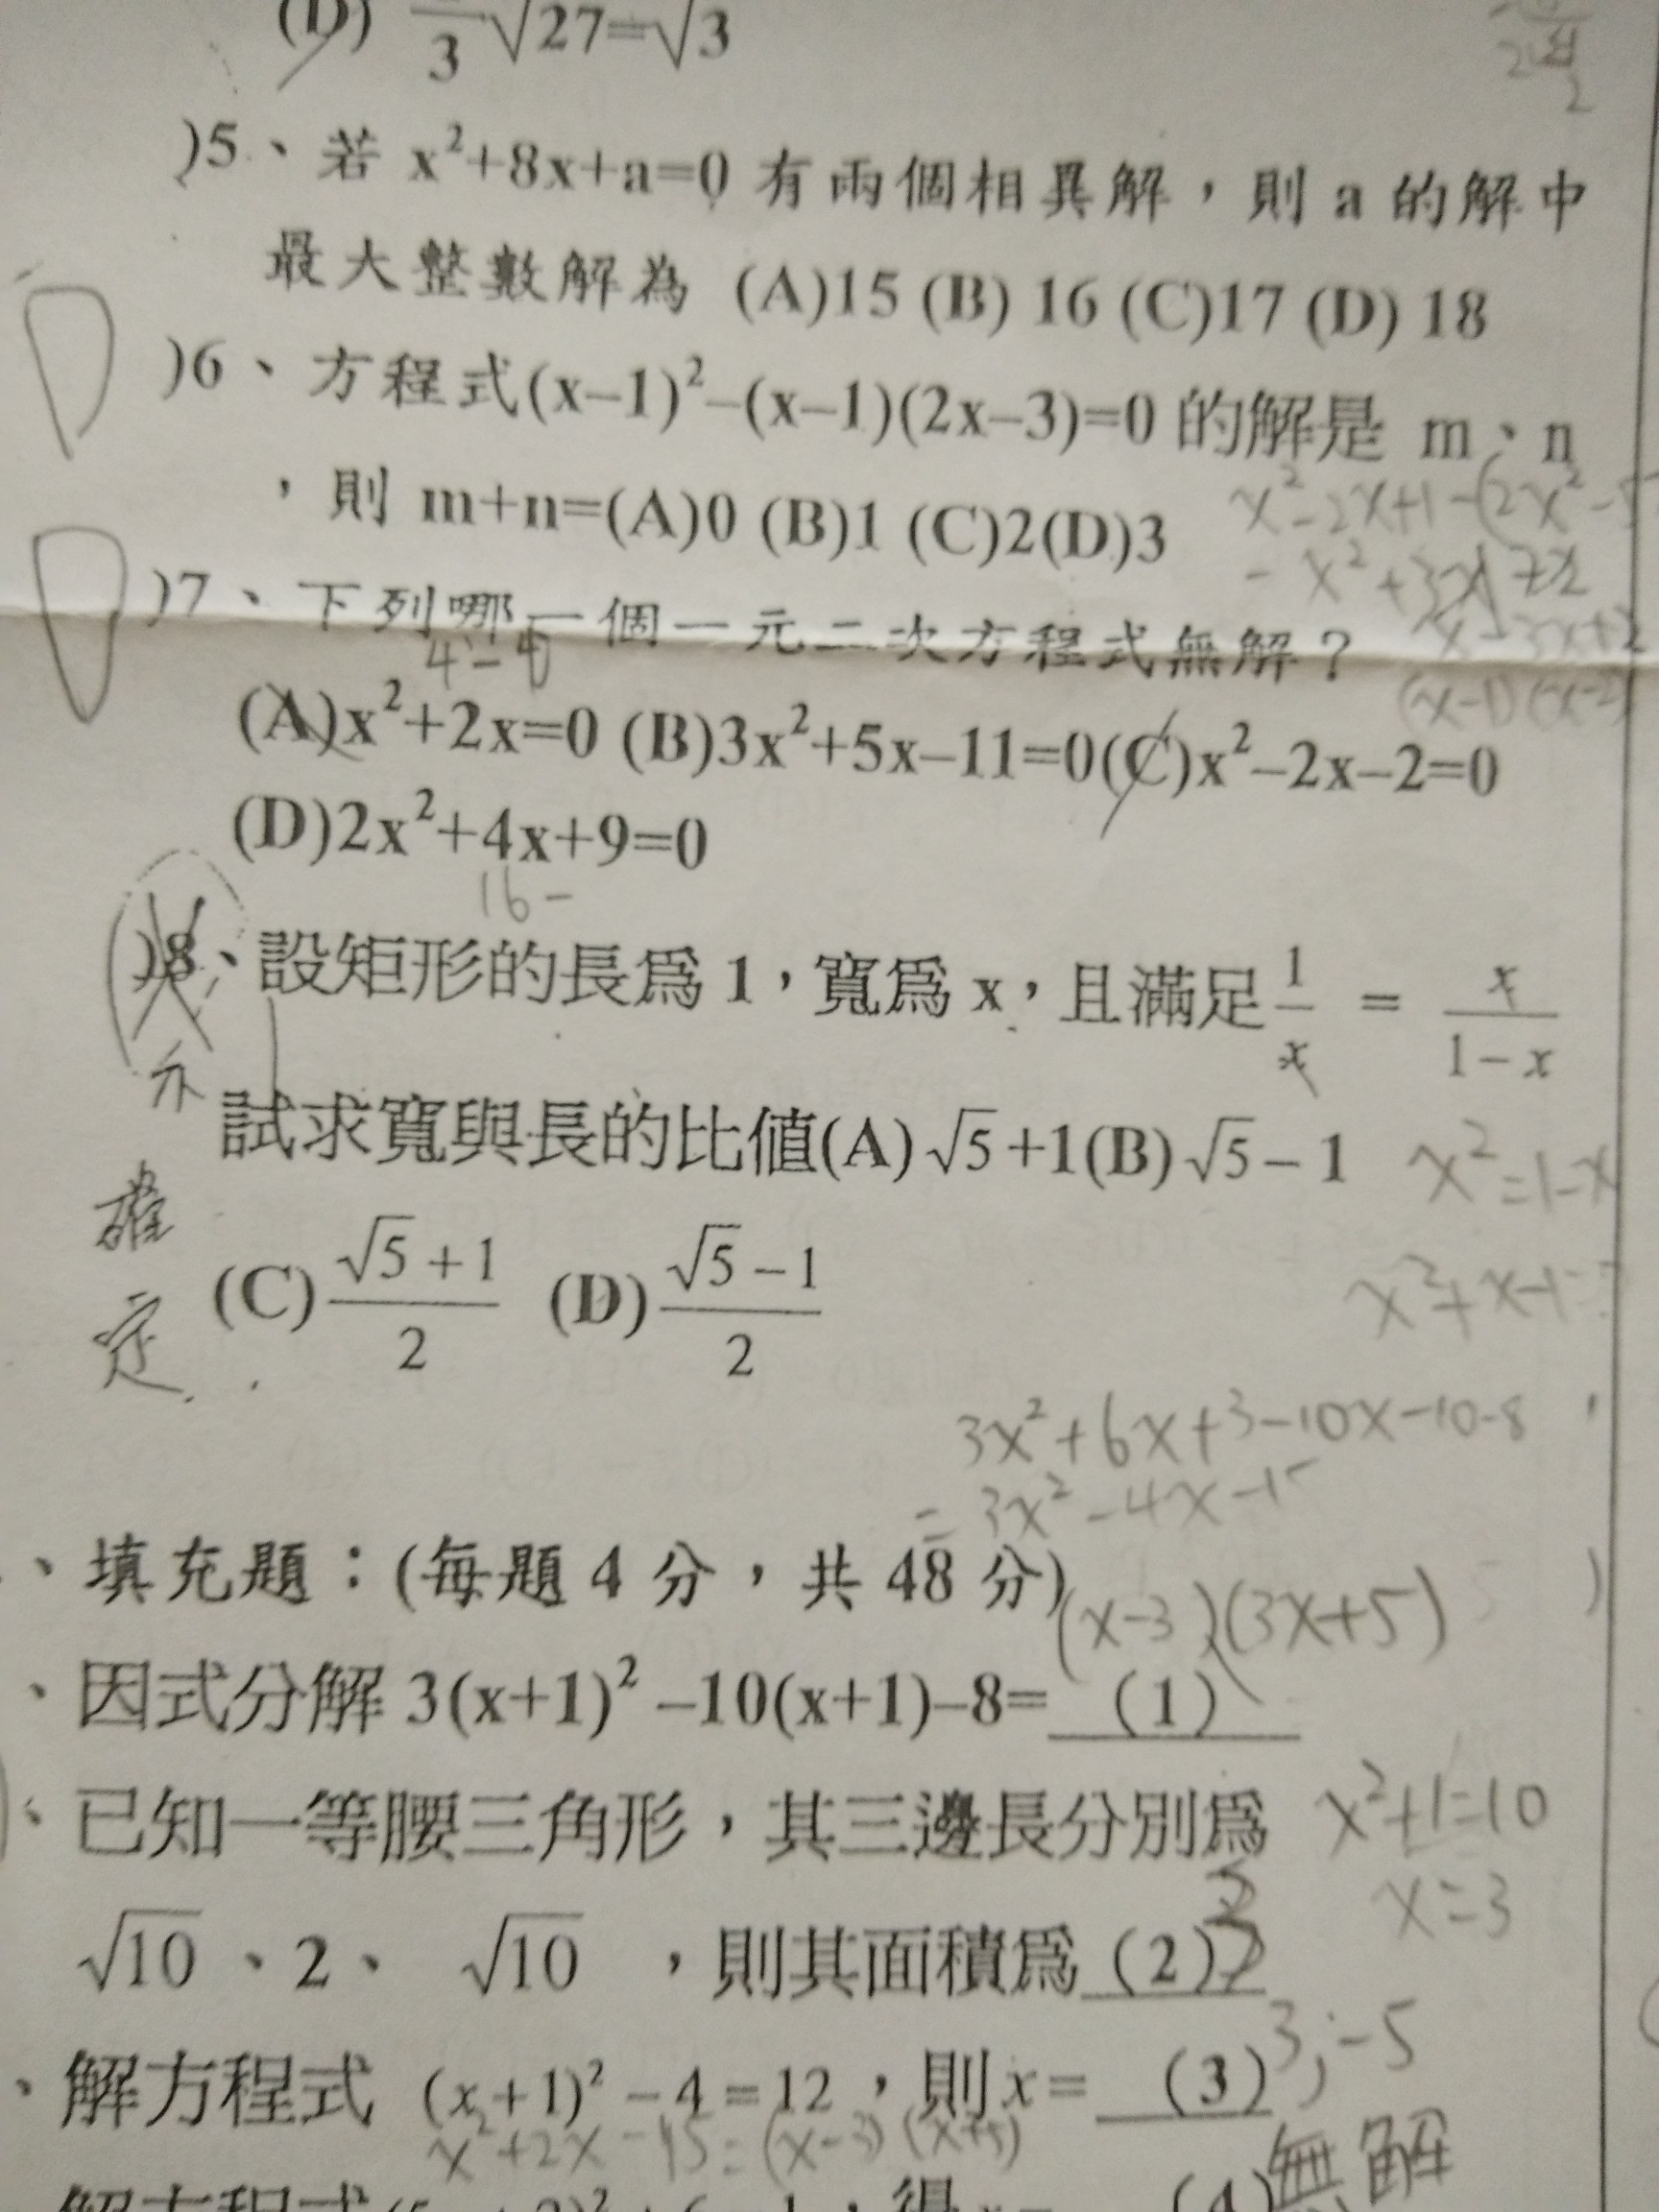 (D) 3√27=√3
)5、若 x²+8x+a=0 有兩個相異解，則 a 的解中
最大整數解為 (A)15 (B) 16 (C)17 (D) 18
)6、方程式(x–1)²–(x–1)(2x–3)=0 的解是 m、n
，則 m+n=(A)0 (B)1 (C)2(D)3
x²-2x+1-(2x²-5
-x²+3x
)7、下列哪一個一元二次方程式無解？
(x-1)(x-2)
(A)x²+2x=0 (B)3x²+5x–11=0(C)x²–2x–2=0
(D)2x²+4x+9=0
16-
)8、設矩形的長為 1，寬為 x，且滿足 1/x = x/(1-x)
試求寬與長的比值(A)√5+1(B)√5-1
x²=1-x
(C) (√5+1)/2 (D) (√5-1)/2
x²+x-1=
確定
3x²+6x+3-10x-10-8
=3x²-4x-15
、填充題：(每題 4 分，共 48 分)
(x-3)(3x+5)
、因式分解 3(x+1)²–10(x+1)–8=（1）
、已知一等腰三角形，其三邊長分別為
x²+1=10
x=3
√10、2、√10，則其面積為（2）
3
、解方程式 (x+1)²-4=12，則 x=（3）
3,-5
x²+2x-15=(x-3)(x+5)
無解
、解方程式